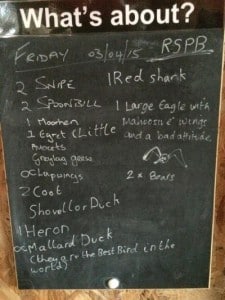 What's about?
FRIDAY 03/04/15 RSPB
2 SNIPE
2 SPOONBILL
1 Moorhen
1 Egret (Little
Avocets
Greylag geese
∞ Lapwings
2 Coot
Shovellor Duck
1 Heron
∞ Mallard Duck
(they are the Best Bird in the
world)
1 Red shank
1 Large Eagle with
Mahoosive wings
and a bad attitude
2 x Bears